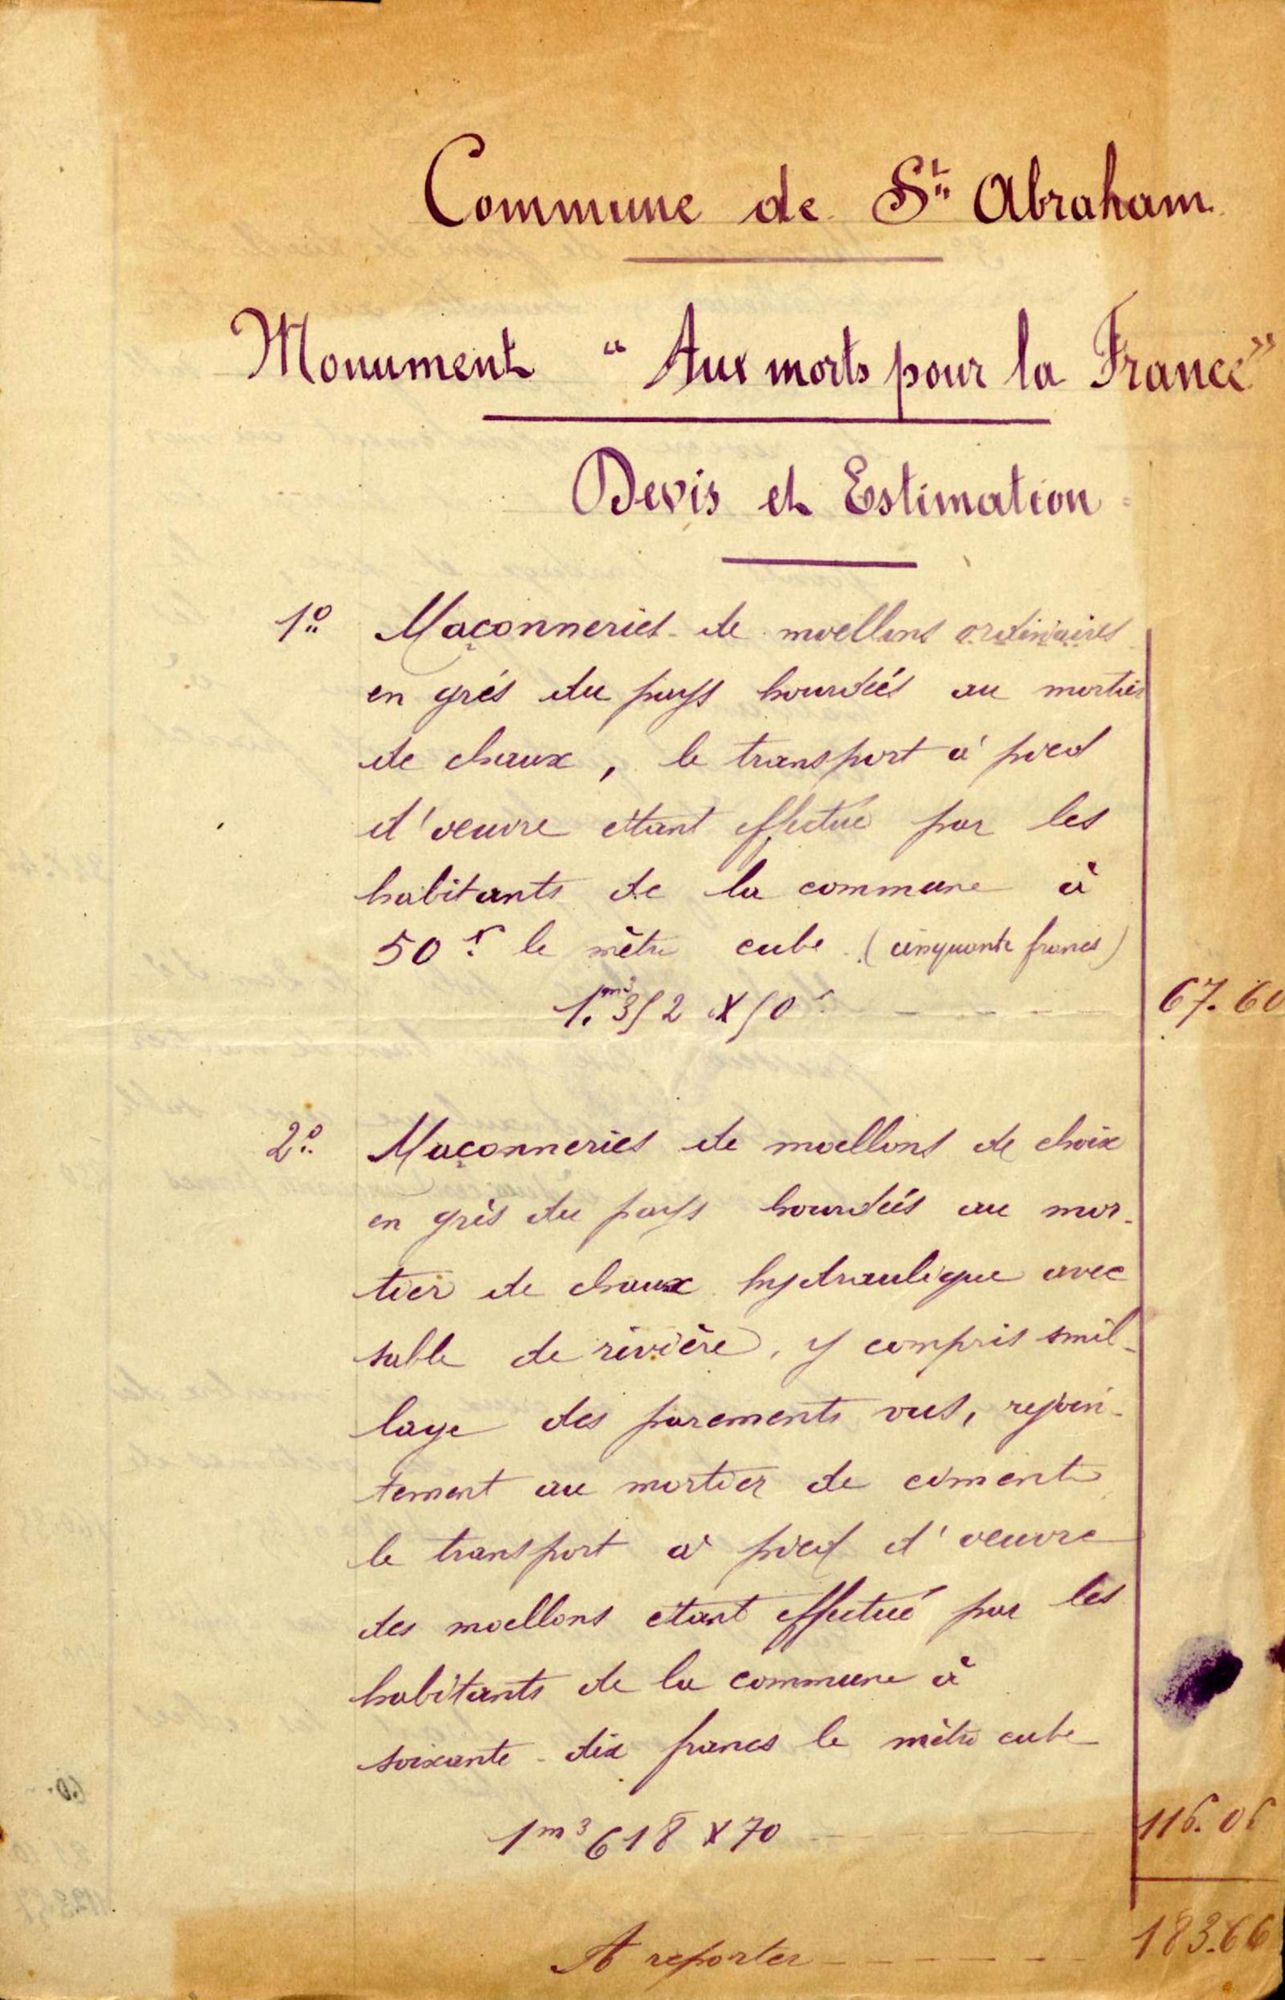 Commune de St Abraham
Monument "Aux morts pour la France"
Devis et Estimation
1º Maçonneries de moellons ordinaires
en grés du pays hourdés au mortier
de chaux, le transport à pied
d'œuvre étant effectué par les
habitants de la commune à
50f le mètre cube (cinquante francs)
1.m³352 x 50f 67.60
2º Maçonneries de moellons de choix
en grès du pays hourdés au mor-
tier de chaux hydraulique avec
sable de rivière, y compris smil-
lage des parements vus, rejoin-
tement au mortier de ciment
le transport à pied d'œuvre
des moellons étant effectué par les
habitants de la commune à
soixante-dix francs le mètre cube
1m³618 x 70 116.06
A reporter 183.66